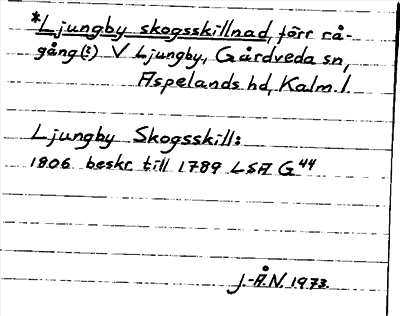 *Ljungby skogsskillnad, förr rå-
gång(?) V Ljungby, Gårdveda sn,
Aspelands hd, Kalm. l.
Ljungby Skogsskill:
1806 beskr till 1789 LSA G44
J.-Å.N. 1973.